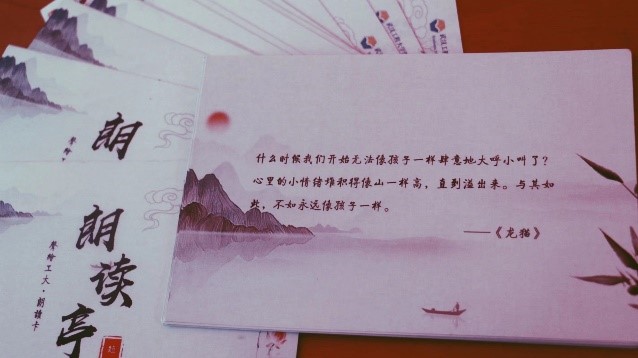 什么时候我们开始无法像孩子一样肆意地大呼小叫了？
心里的小情绪堆积得像山一样高，直到溢出来。与其如
此，不如永远像孩子一样。
——《龙猫》
朗
朗读亭
聲聆工大·朗讀卡